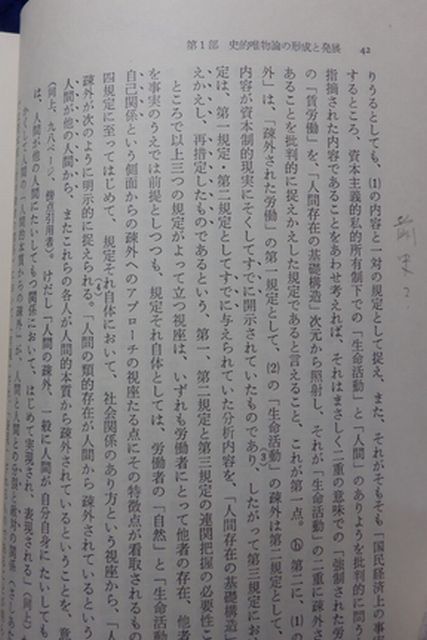 第1部 史的唯物論の形成と発展 42
りうるとしても、(1)の内容と一対の規定として捉え、また、それがそもそも「国民経済上の事実
するところ、資本主義的私的所有制下での「生命活動」と「人間」のありようを批判的に問
指摘された内容であることをあわせ考えれば、それはまさしく二重の意味での「強制された労
の「賃労働」を、「人間存在の基礎構造」次元から照射し、それが「生命活動」の二重に疎外
あることを批判的に捉えかえした規定であると言えること、これが第一点。ⓑ第二に、(1)の
外」は、「疎外された労働」の第一規定として、(2)の「生命活動」の疎外は第二規定として、
内容が資本制的現実にそくしてすでに開示されていたものであり、(3)したがって第三規定にお
定は、第一規定・第二規定としてすでに与えられていた分析内容を、「人間存在の基礎構造」
えかえし、再措定したものであるという、第一、第二規定と第三規定の連関把握の必要性こ
ところで以上三つの規定がよって立つ視座は、いずれも労働者にとって他者の存在、他者
を事実のうえでは前提としつつも、規定それ自体としては、労働者の「自然」と「生命活
自己関係という側面からの疎外へのアプローチの視座たる点にその特徴点が看取されるもの
四規定に至ってはじめて、規定それ自体において、社会関係のあり方という視座から、「人
疎外が次のように明示的に捉えられる。「人間の類的存在が人間から疎外されているという
人間が他の人間から、またこれらの各人が人間的本質から疎外されているということを、意
(同上、九八ページ、傍点引用者)。けだし「人間の疎外、一般に人間が自分自身にたいしても
は、人間が他の人間にたいしてもつ関係において、はじめて実現され、表現される」(同上)